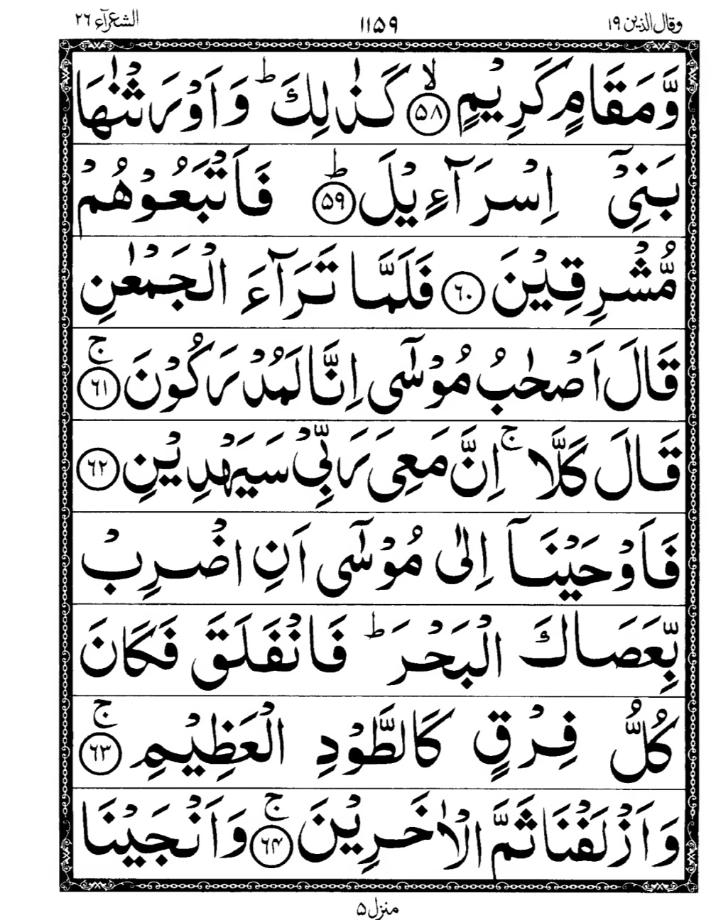 وقال الذين ١٩ ١١٥٩ الشعرآء ٢٦
وَّمَقَامٍ كَرِيْمٍ ۙ﴿۵۸﴾ كَذٰلِكَ ؕ وَاَوْرَثْنٰهَا
بَنِيْۤ اِسْرَآءِيْلَ ؕ﴿۵۹﴾ فَاَتْبَعُوْهُمْ
مُّشْرِقِيْنَ ﴿۶۰﴾ فَلَمَّا تَرَآءَ الْجَمْعٰنِ
قَالَ اَصْحٰبُ مُوْسٰۤى اِنَّا لَمُدْرَكُوْنَ ۚ﴿۶۱﴾
قَالَ كَلَّا ۚ اِنَّ مَعِىَ رَبِّىْ سَيَهْدِيْنِ ﴿۶۲﴾
فَاَوْحَيْنَاۤ اِلٰى مُوْسٰۤى اَنِ اضْرِبْ
بِّعَصَاكَ الْبَحْرَ ؕ فَانْفَلَقَ فَكَانَ
كُلُّ فِرْقٍ كَالطَّوْدِ الْعَظِيْمِ ۚ﴿۶۳﴾
وَاَزْلَفْنَا ثَمَّ الْاٰخَرِيْنَ ۚ﴿۶۴﴾ وَاَنْجَيْنَا
منزل ۵